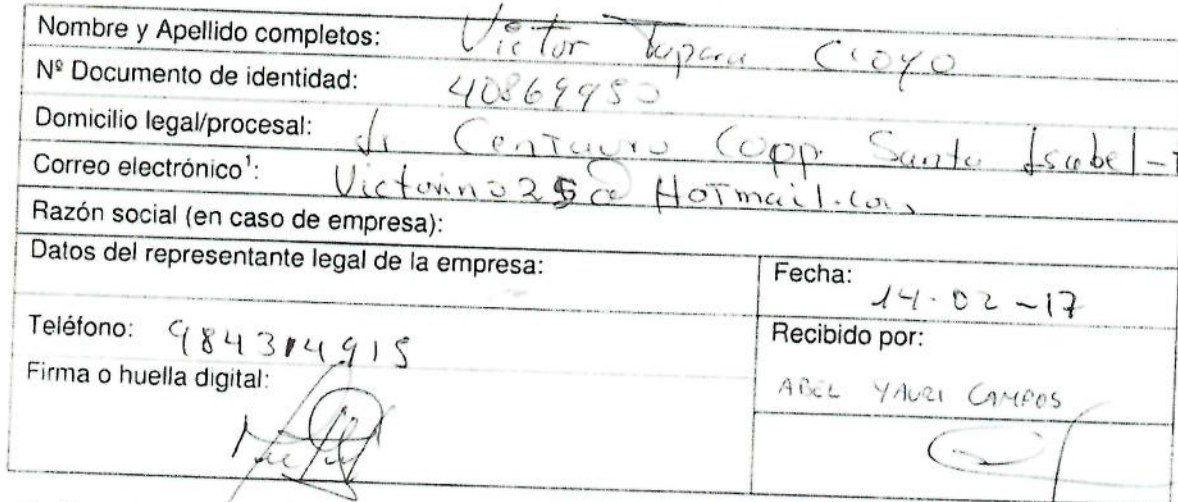 Nombre y Apellido completos: Victor Tupara Ccoyo
Nº Documento de identidad: 40869950
Domicilio legal/procesal: Jr Centauro Copp. Santa Isabel -
Correo electrónico¹: Victorino25@Hotmail.com
Razón social (en caso de empresa):
Datos del representante legal de la empresa:
Fecha: 14.02-17
Teléfono: 984314915
Recibido por:
ABEL YAURI CAMPOS
Firma o huella digital: